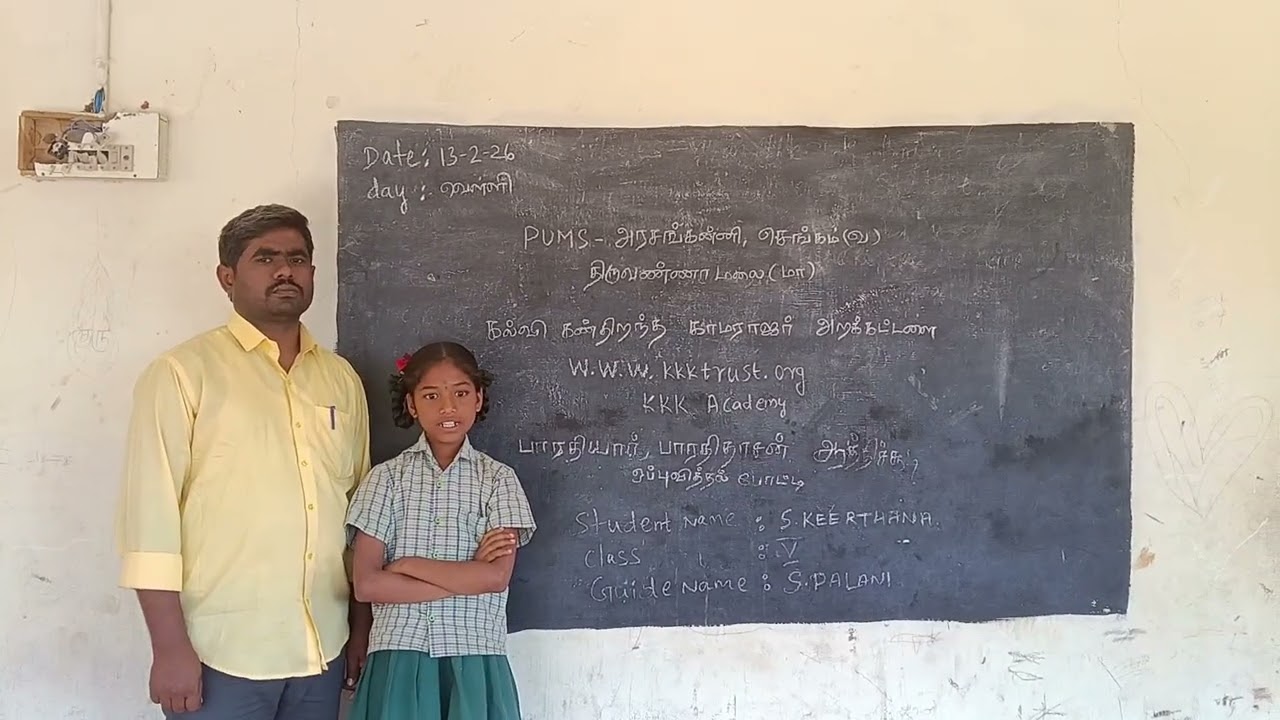 Date: 13-2-26
day : வெள்ளி
PUMS - அரசங்கண்ணி, செங்கம்(வ)
திருவண்ணாமலை(மா)
கல்வி கண்திறந்த காமராஜர் அறக்கட்டளை
W.W.W. kkktrust.org
KKK Academy
பாரதியார், பாரதிதாசன் ஆத்திச்சூடி
ஒப்புவித்தல் போட்டி
Student name : S.KEERTHANA.
Class : V
Guide name : S.PALANI
குரு